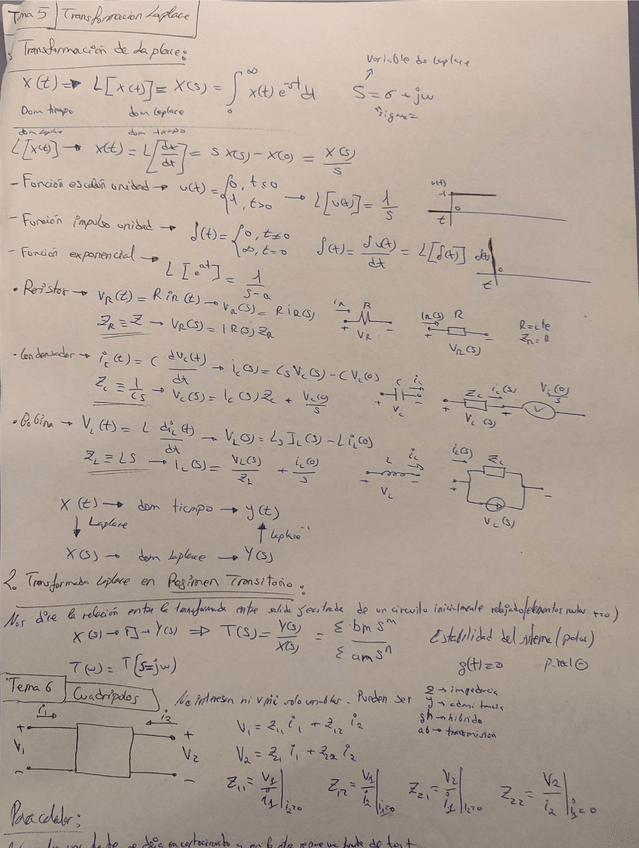 Tema 5 Transformación Laplace
Transformación de Laplace:
x(t) → L[x(t)] = X(s) = ∫₀^∞ x(t) e^-st dt
variable de Laplace
S = σ + jω
Dom tiempo dom Laplace
L[x(t)] → x(t) = L[dx/dt] = S X(s) - X(0) = X(s)/s
- Función escalón unidad → u(t) = {0, t≤0 1, t>0 → L[u(t)] = 1/s
u(t) 1 0 t
- Función impulso unidad → δ(t) = {0, t≠0 ∞, t=0 δ(t) = δu(t)/dt = L[δ(t)]
δ(t) 0 t
- Función exponencial → L[e^at] = 1/(s-a)
• Resistor → VR(t) = R iR(t) → VR(s) = R iR(s)
ZR ≡ Z → VR(s) = IR(s) ZR
iR R + VR -
IR(s) R + VR(s) -
R = cte
ZR = R
• Condensador → ic(t) = C dVc(t)/dt → ic(s) = CS Vc(s) - C Vc(0)
Zc ≡ 1/CS → Vc(s) = Ic(s) Zc + Vc(0)/s
C ic + Vc -
Zc ic(s) Vc(0)/s + Vc(s) -
• Bobina → VL(t) = L diL(t)/dt → VL(s) = LS IL(s) - L iL(0)
ZL ≡ LS → IL(s) = VL(s)/ZL + iL(0)/s
L iL + VL -
iL(s) ZL + VL(s) -
X(t) → dom tiempo → y(t)
↓ Laplace ↑ Laplace⁻¹
X(s) → dom Laplace → Y(s)
2. Transformada Laplace en Regimen Transitorio:
Nos dice la relación entre la transformada entre salida y entrada de un circuito inicialmente relajado
X(s) → □ → Y(s) ⇒ T(s) = Y(s)/X(s) = Σ bm s^m / Σ am s^n
Estabilidad del sistema (polos)
T(ω) = T(s=jω)
g(t)=0 p.real ⊖
Tema 6 Cuadripolos
No interesan ni v ni i solo variables. Pueden ser
z → impedancia
y → admitancia
gh → hibrido
ab → transmision
i1 i2 + V1 - + V2 -
V1 = Z11 i1 + Z12 i2
V2 = Z21 i1 + Z22 i2
Z11 = V1/i1 |i2=0 Z12 = V1/i2 |i1=0 Z21 = V2/i1 |i2=0 Z22 = V2/i2 |i1=0
Para calcular: